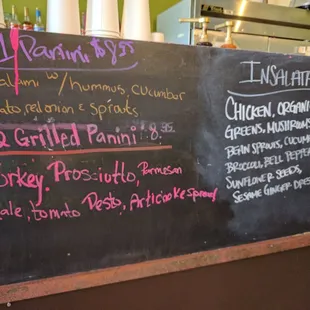 1 Panini $8.95
alami w/ hummus, cucumber
ato, red onion & sprouts
2 Grilled Panini 8.95
urkey, Prosciutto, Parmesan
ale, tomato Pesto, Artichoke spread
INSALATA
CHICKEN, ORGANI
GREENS, MUSHROOMS
BEAN SPROUTS, CUCUM
BROCCOLI, BELL PEPPER
SUNFLOWER SEEDS,
SESAME GINGER DRES